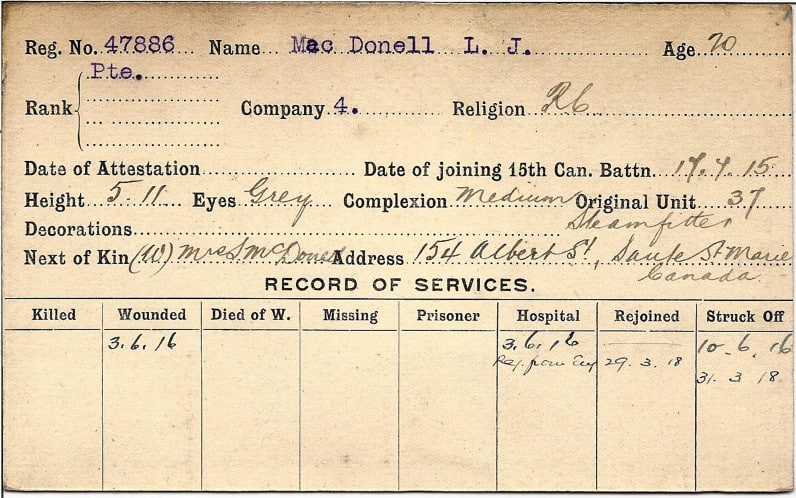 Reg. No. 47886 Name Mac Donell L. J. Age 20
Pte.
Rank Company 4. Religion RC
Date of Attestation Date of joining 15th Can. Battn. 17.7.15
Height 5-11 Eyes Grey Complexion Medium Original Unit 37
Decorations Steamfitter
Next of Kin (W) Mrs L McDonell Address 154 Albert St, Saute St Marie
Canada
RECORD OF SERVICES.
Killed Wounded Died of W. Missing Prisoner Hospital Rejoined Struck Off
3.6.16 3.6.16 10-6.16
Rej. from Eng 29.3.18 31.3 18.